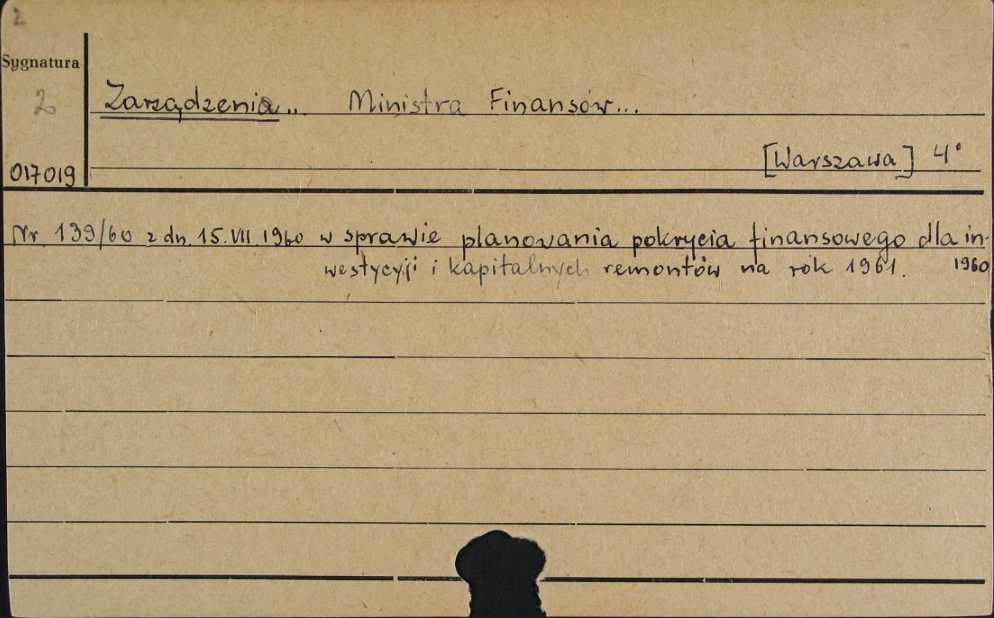 2
Sygnatura
2
Zarządzenia.. Ministra Finansów...
[Warszawa] 4°
017019
Nr. 139/60 z dn. 15.VII 1960 w sprawie planowania pokrycia finansowego dla in-
westycyji i kapitalnych remontów na rok 1961. 1960